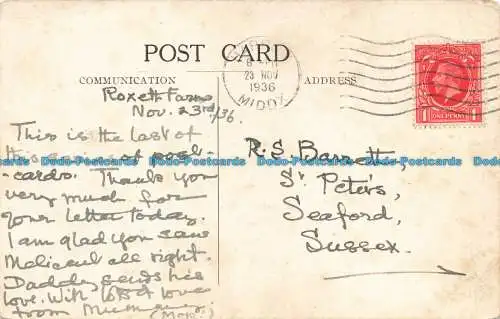 POST CARD
COMMUNICATION
ADDRESS
23 NOV
1936
MIDDX
ONE PENNY
Roxeth Farm
Nov. 23rd/36.
This is the last of
this of post-
cards. Thank you
very much for
your letter today.
I am glad you saw
all right.
Daddy sends his
love. With lots of love
from Mummy
R.S. Barrett,
St Peter's,
Seaford,
Sussex.
Dodo-Postcards Dodo-Postcards Dodo-Postcards Dodo-Postcards Dodo-Postcards